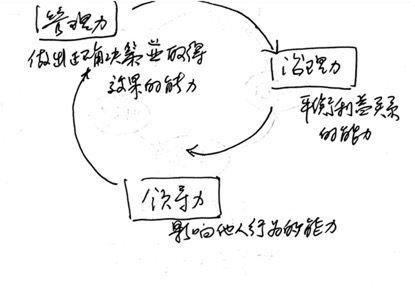 管理力
做出正确决策并取得
效果的能力
治理力
平衡利益关系
的能力
领导力
影响他人行为的能力